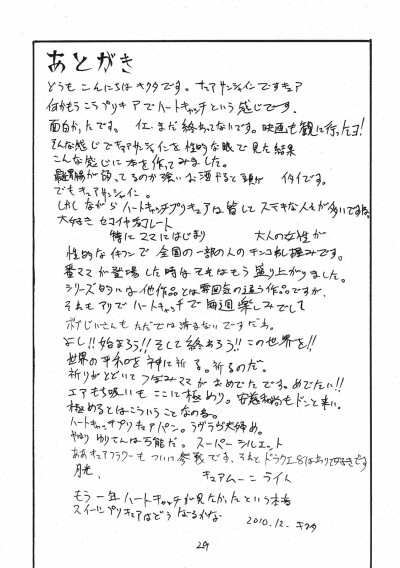 あとがき
どうも こんにちは キクタです。 キュアサンシャインですキュア
何かもう こう プリキュアでハートキャッチという感じです、
面白かったです。 イエ、まだ終わってないです。映画も観に行ったヨ!
そんな感じでキュアサンシャインを性的な眼で見た結果
こんな感じに本を作ってみました。
弱ってるのか強いお酒やると イタイです。
でもキュアサンシャイン。
しかしながらハートキャッチプリキュアは皆してステキな人が多いですね
大好き セコイヤチョコレート
特にママにはじまり 大人の女性が
性的な 全国の一部の人の
番ママが登場した時はそれはもう盛り上がりました。
シリーズ的には他作品とは雰囲気の違う作品ですが、
それもアリでハートキャッチで毎週楽しみでして
もただでは済まないですだわ。
よし!!始まろう!!そして終わろう!!この世界を!!
世界の平和を神に祈る。祈るのだ。
祈りがとどいてつぼみママがおめでたです。めでたい!!
エアもち吸いもここに極めり。安藤和尚もドンと来い。
極めるとはこういうことなのね。
ハートキャッチプリキュアパン。ラヴラヴ大好め。
やはりゆりさんは万能だ。 スーパーシルエット
ああキュアフラワーもついに参戦です、それとドラクエ8はありで好きです
月光、 キュアムーンライト
もう一年ハートキャッチが見たかったという本音
スイートプリキュアはどうなるかな 2010.12. キクタ
29